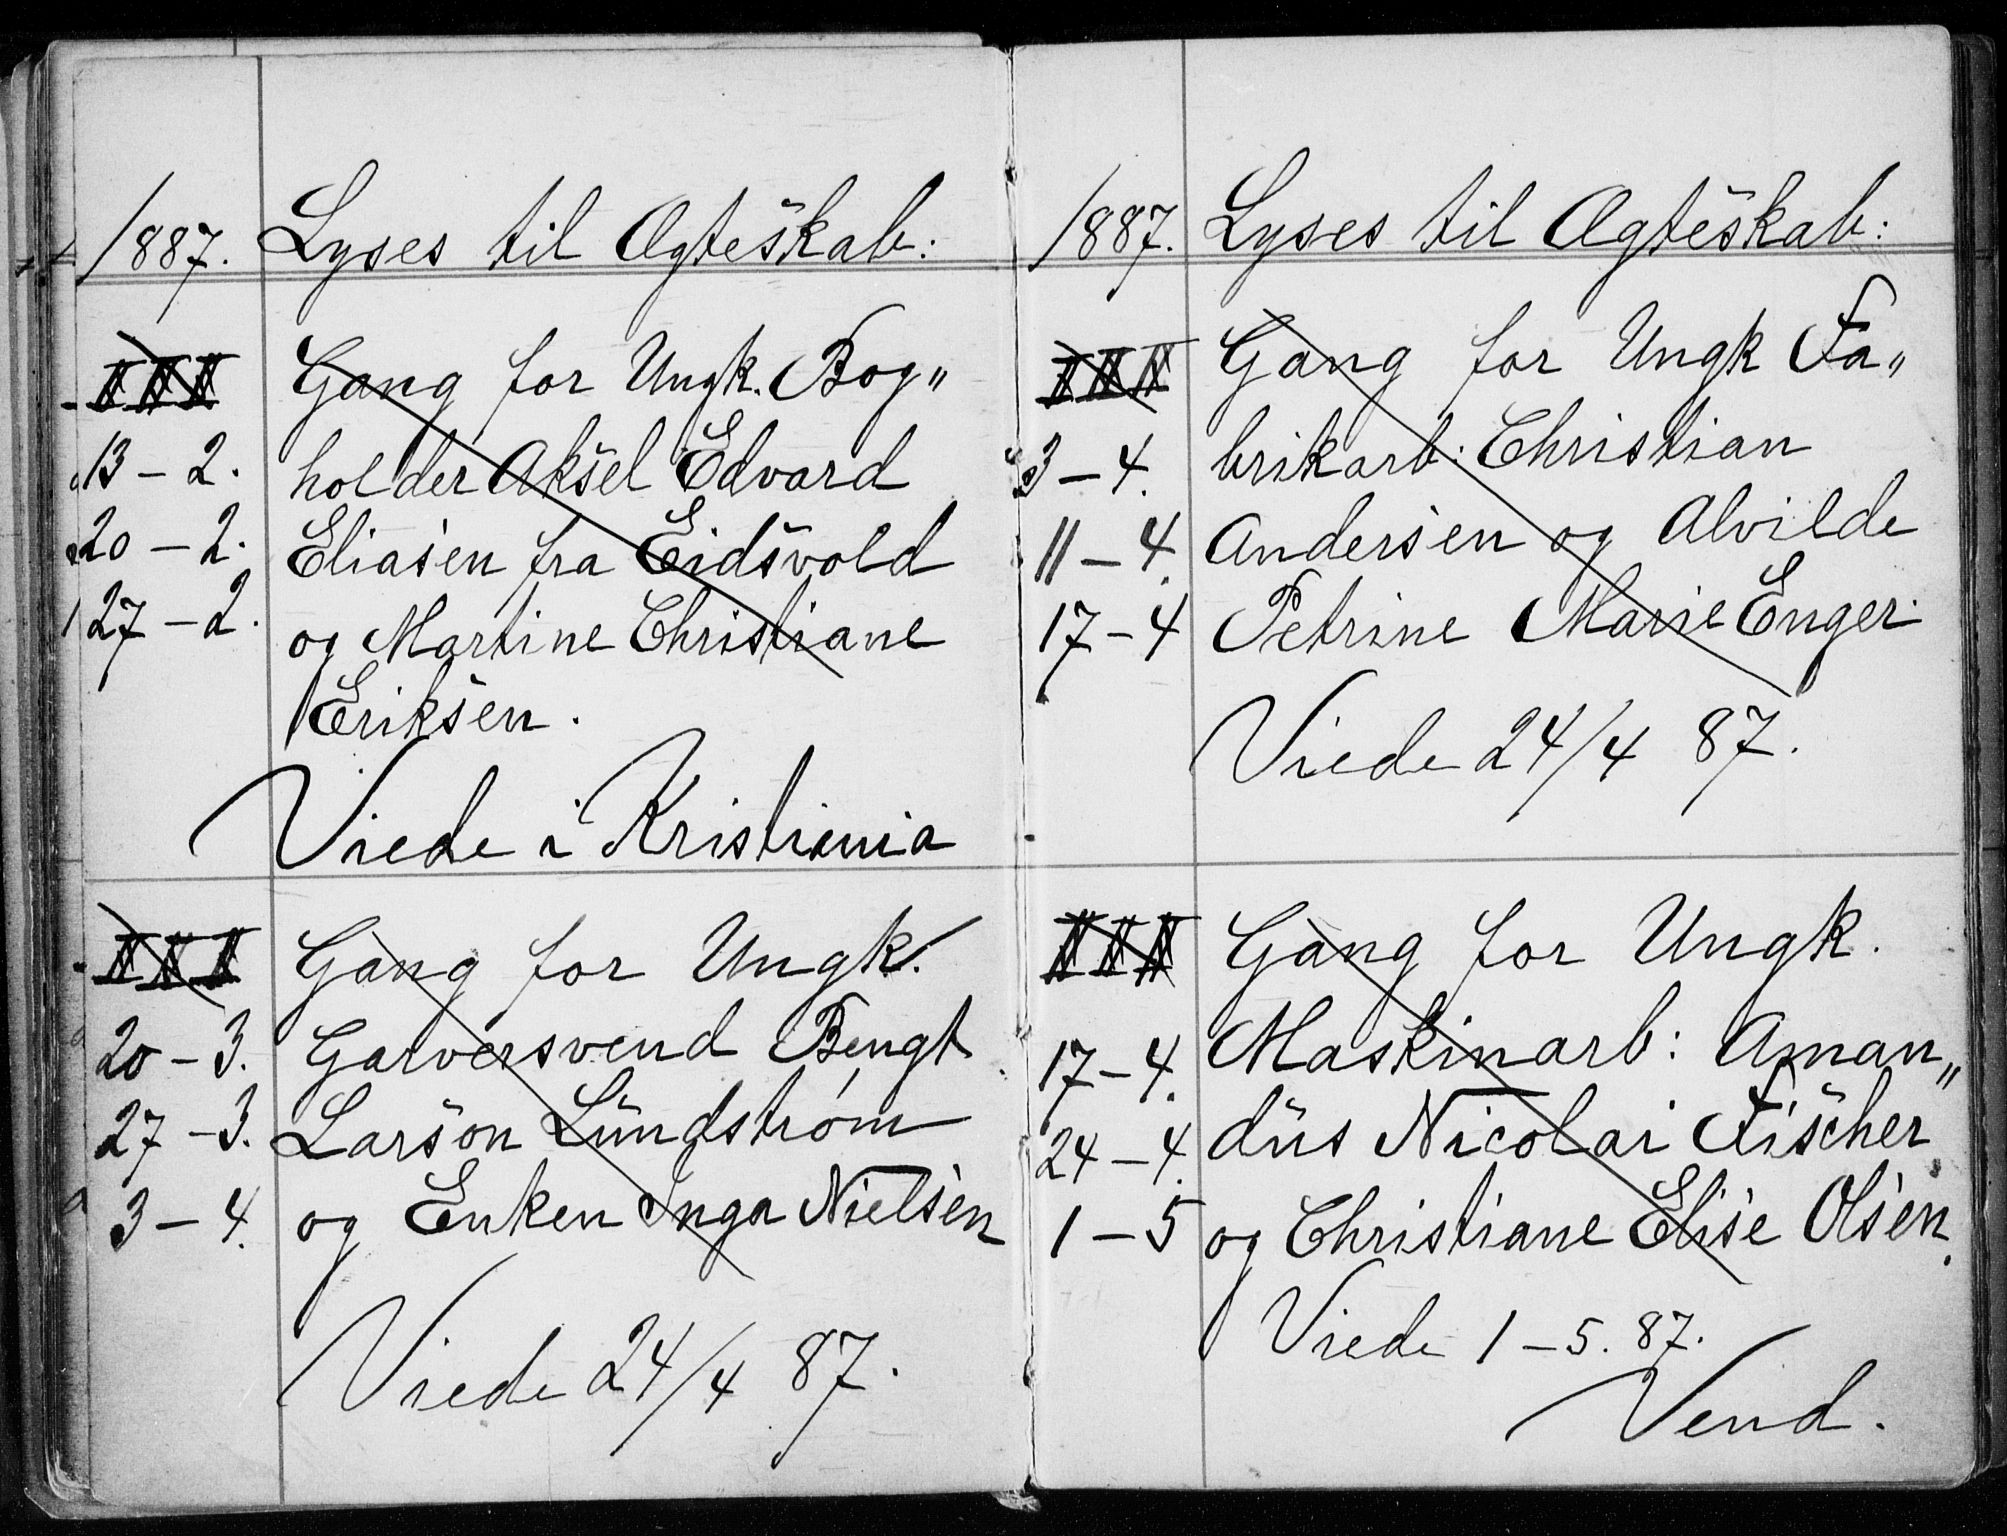 1887. Lyses til Ægteskab:
III Gang for Ungk. Bog„
13 – 2. holder Aksel Edvard
20 – 2. Eliasen fra Eidsvold
27 – 2. og Martine Christiane
Eriksen.
Viede i Kristiania
III Gang for Ungk.
20 – 3. Garversvend Bengt
27 – 3. Larson Lundstrøm
3 – 4. og Enken Inga Nielsen
Viede 24/4 87.
1887. Lyses til Ægteskab:
III Gang for Ungk Fa„
3 – 4. brikarb: Christian
11 – 4. Andersen og Alvilde
17 – 4 Petrine Marie Enger.
Viede 24/4 87.
III Gang for Ungk.
17 – 4. Maskinarb: Aman„
24 – 4. dus Nicolai Fischer
1 – 5 og Christiane Elise Olsen.
Viede 1 – 5. 87.
Vend.